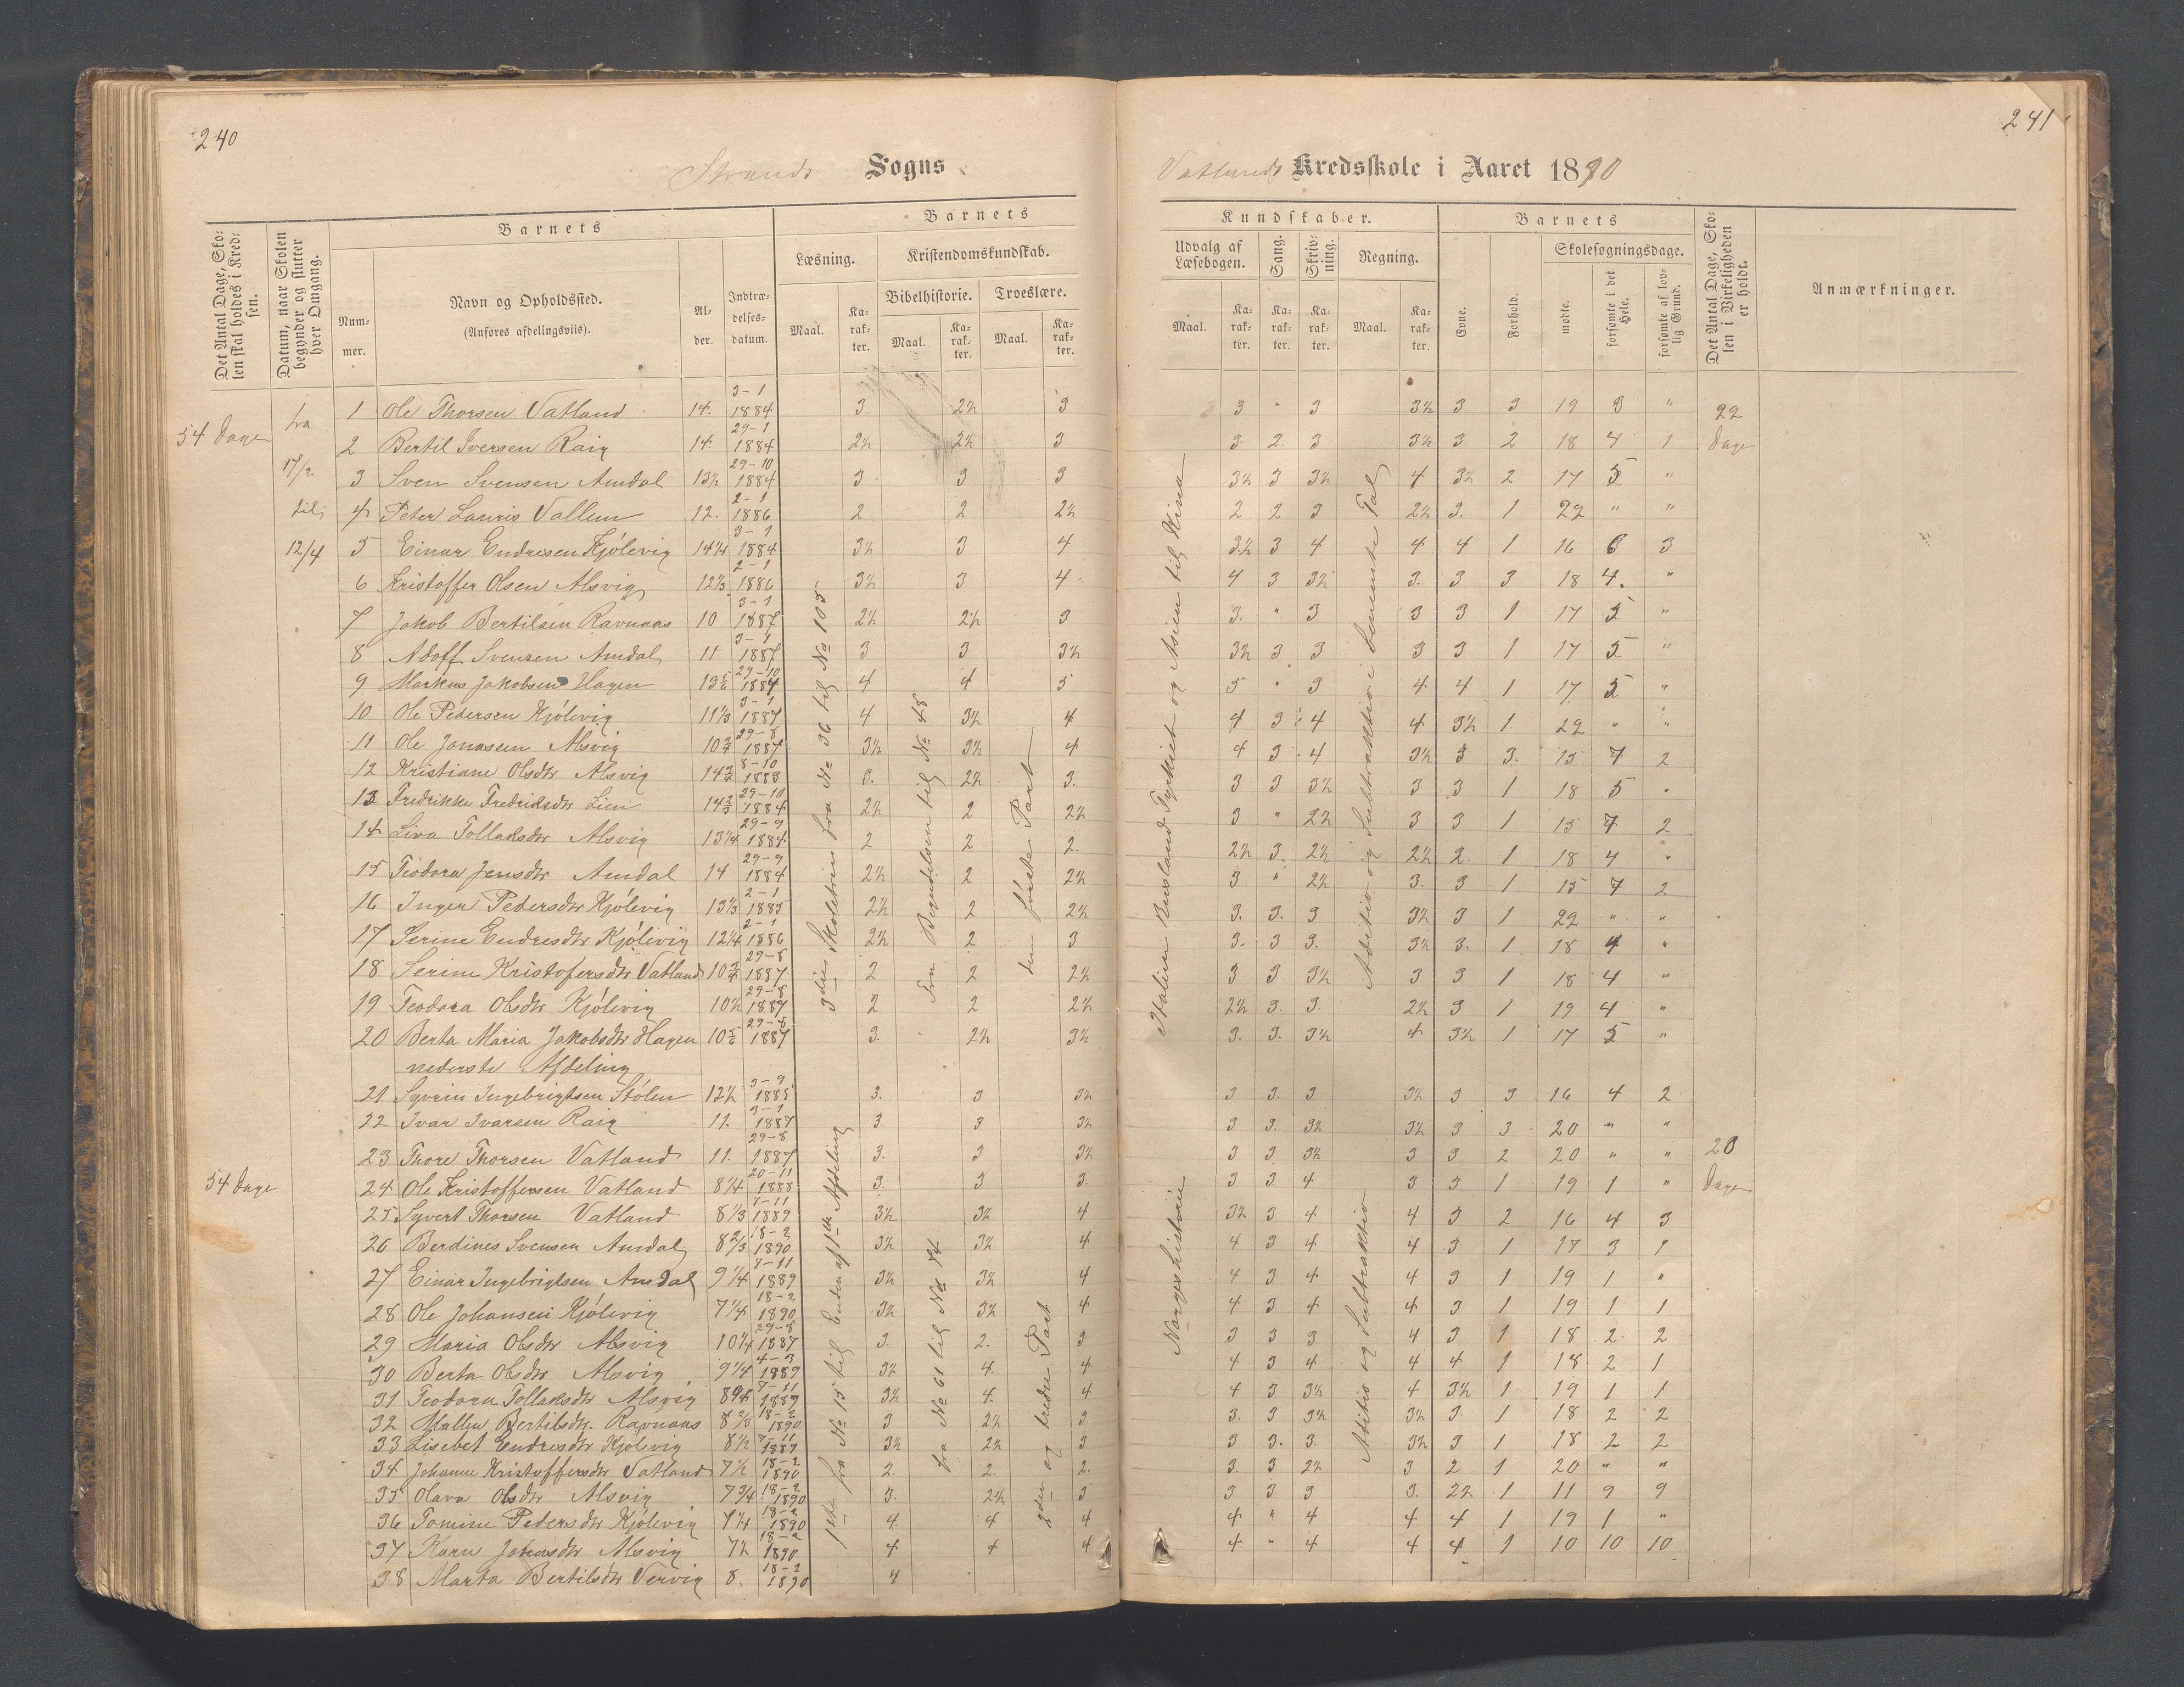 240
Strands Sogns
Det Antal Dage, Sko-
len skal holdes i Kred-
sen.
Datum, naar Skolen
begynder og slutter
hver Omgang.
Barnets
Num-
mer.
Navn og Opholdssted.
(Anføres afdelingsviis).
Al-
der.
Indtræ-
delses-
datum.
Barnets
Læsning.
Maal.
Ka-
rak-
ter.
Kristendomskundskab.
Bibelhistorie.
Troeslære.
Maal.
Ka-
rak-
ter.
Maal.
Ka-
rak-
ter.
54 Dage
fra
17/2
til
12/4
1 Ole Thorsen Vatland 14. 3-1 1884 3. 2½ 3
2 Bertil Iversen Raig 14. 29-1 1884 2½ 2½ 3
3 Sven Svensen Amdal 13½ 29-10 1884 3 3 3
4 Peter Lauris Vallem 12. 2-1 1886 2 2 2½
5 Einar Endresen Kjölevig 14¼ 3-1 1884 3½ 3 4
6 Kristoffer Olsen Alsvig 12⅓ 2-1 1886 3½ 3 4
7 Jakob Bertilsen Ravnaas 10 3-1 1887 2½ 2½ 3
8 Adolf Svensen Amdal 11 3-1 1887 3 3 3½
9 Markus Jakobsen Hagen 13 5/6 29-10 1884 4 4 5
10 Ole Pedersen Kjölevig 11⅓ 3-1 1887 4 3½ 4
11 Ole Jonasen Alsvig 10¾ 29-8 1887 3½ 3½ 4
12 Kristiane Olsdtr Alsvig 14¾ 8-10 1883 3. 2½ 3.
13 Fredrikke Fredriksdtr Lien 14⅔ 29-10 1884 2½ 2 2½
14 Liva Tollaksdtr Alsvig 13¼ 29-9 1884 2 2 2.
15 Teodora Jensdtr Amdal 14 29-9 1884 2½ 2 2½
16 Inger Pedersdtr Kjölevig 13⅓ 2-1 1885 2½ 2 2½
17 Serine Endresdtr Kjölevig 12¼ 2-1 1886 2½ 2 3
18 Serine Kristofersdtr Vatland 10¾ 29-8 1887 2 2 2½
19 Teodora Olsdtr Kjölevig 10½ 29-8 1887 2 2 2½
20 Berta Maria Jakobsdtr Hagen 10 5/6 29-8 1887 3. 2½ 3½
nederste Afdeling
21 Syvrin Ingebrigtsen Stölen 12½ 3-9 1885 3. 3 3½
22 Ivar Ivarsen Raig 11. 3-1 1887 3 3 3½
23 Thore Thorsen Vatland 11. 29-8 1887 3. 3 3½
54 Dage
24 Ole Kristoffersen Vatland 8¼ 20-11 1888 3. 3 3.
25 Syvert Thorsen Vatland 8⅓ 7-11 1889 3½ 3½ 4
26 Berdines Svensen Amdal 8⅔ 18-2 1890 3½ 3½ 4
27 Einar Ingebrigtsen Amdal 9¼ 7-11 1889 3½ 3½ 4
28 Ole Johansen Kjölevig 7¼ 18-2 1890 3½ 3½ 4
29 Maria Olsdtr Alsvig 10¼ 29-8 1887 3. 2. 3
30 Berta Olsdtr Alsvig 9¼ 4-3 1889 3½ 4. 4
31 Teodora Tollaksdtr Alsvig 8¾ 7-11 1889 3½ 4. 4
32 Mallen Bertilsdtr. Ravnaas 8 18-2 1890 3 2½ 3.
33 Lisebet Endresdtr Kjölevig 8½ 7-11 1889 3½ 2½ 3
34 Johanne Kristoffersdtr Vatland 7½ 18-2 1890 2. 2. 2.
35 Olava Olsdtr Alsvig 7¾ 18-2 1890 3. 2½ 3
36 Tomine Pedersdtr Kjölevig 7¼ 18-2 1890 4. 4 4
37 Karn Jonasdtr Alsvig 7½ 18-2 1890 4 4 4
38 Marta Bertilsdtr Vervig 8. 18-2 1890 4
3dies Skoletrin fra No 36 til No 105
Fra Begyndelsen til No 48
den förste Part
1ste fra No 15 til Enden af 1ste Afdeling
fra No 61 til No 74
2den og tredie Part
241
Vatlands Kredsskole i Aaret 1890
Kundskaber.
Udvalg af
Læsebogen.
Maal.
Ka-
rak-
ter.
Sang.
Ka-
rak-
ter.
Skriv-
ning.
Ka-
rak-
ter.
Regning.
Maal.
Ka-
rak-
ter.
Barnets
Evne.
Forhold.
Skolesøgningsdage.
mødte.
forsømte i det
Hele.
forsømte af lov-
lig Grund.
Det Antal Dage, Sko-
len i Virkeligheden
er holdt.
Anmærkninger.
3 " 3 3½ 3 3 19 3 " 22
3 2. 3 3½ 3 2 18 4 1 Dage
3½ 3 3½ 4 3½ 2 17 5 "
2 2 3 2½ 3. 1 22 " "
3½ 3 4 4 4 1 16 6 3
4 3 3½ 3. 3 3 18 4. "
3. " 3 3 3 1 17 5 "
3½ 3 3 3 3 1 17 5 "
5 " 3 4 4 1 17 5 "
4 3 4 4 3½ 1 22 " "
4 3 4 3½ 3 3. 15 7 2
3 3 3½ 3 3 1 18 5 "
3 " 2½ 3 3 1 15 7 2
2½ 3. 2½ 2½ 2. 1 18 4 "
3 " 2½ 3. 3 1 15 7 2
3. 3. 3 3½ 3 1 22 " "
3. 3 3. 3½ 3. 1 18 4 "
3 3 3½ 3 3 1 18 4 "
2½ 3. 3. 2½ 3 1 19 4 "
3. 3. 3½ 4 3½ 1 17 5 "
3 3. 3 3½ 3 3 16 4 2
3 3. 3½ 3½ 3 3 20 " "
3 3 3½ 3 3 2 20 " " 20
3 3 4 3 3 1 19 1 " Dage
3½ 3 4 4 3 2 16 4 3
4 3 4 4 3 1 17 3 1
4 3 4 4 3 1 19 1 "
4 3 4 4 3 1 19 1 1
3 3 3 4 3 1 18 2 2
4 3 4 4 4 1 18 2 1
4 3 3½ 4 3½ 1 19 1 1
3. 3 3½ 3½ 3. 1 18 2 2
3 3. 3. 3½ 3 1 18 2 2
3. 3 2½ 3 2 1 20 " "
3 3 3 3. 2½ 1 11 9 9
4 " 4 4 4 1 19 1 "
4 " 4 4 4 1 10 10 10
Italien Rusland Tyrkiet og Asien til Kina
Aditio og Subtraktio i benævnte Tal
Norges historie
Aditio og Subtraktio